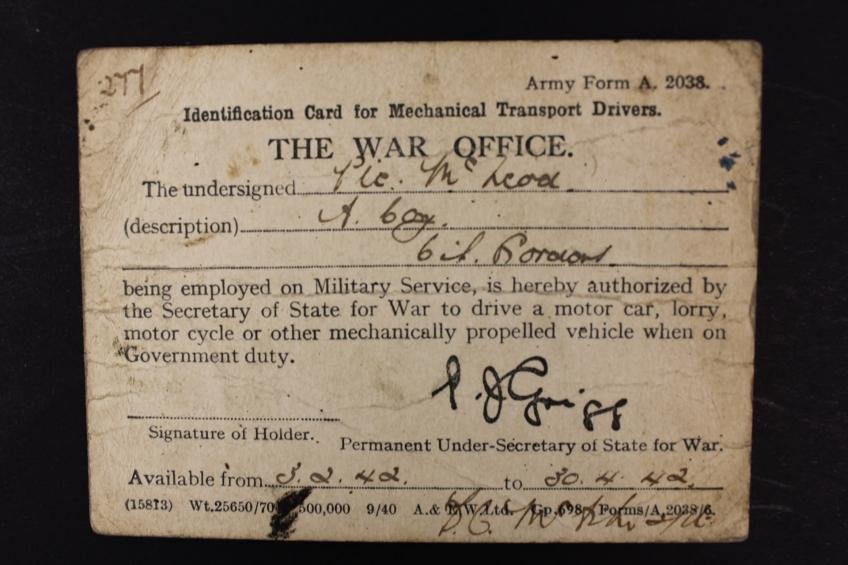 277
Army Form A. 2038.
Identification Card for Mechanical Transport Drivers.
THE WAR OFFICE.
The undersigned Pte. McLeod
(description) A. Coy.
Borders
being employed on Military Service, is hereby authorized by
the Secretary of State for War to drive a motor car, lorry,
motor cycle or other mechanically propelled vehicle when on
Government duty.
P. J. Grigg
Signature of Holder.
Permanent Under-Secretary of State for War.
Available from 3.2.42. to 30.4.42.
(15813) Wt.25650/70 500,000 9/40 A.& E.W.Ltd. Gp.698 Forms/A,2038/6.